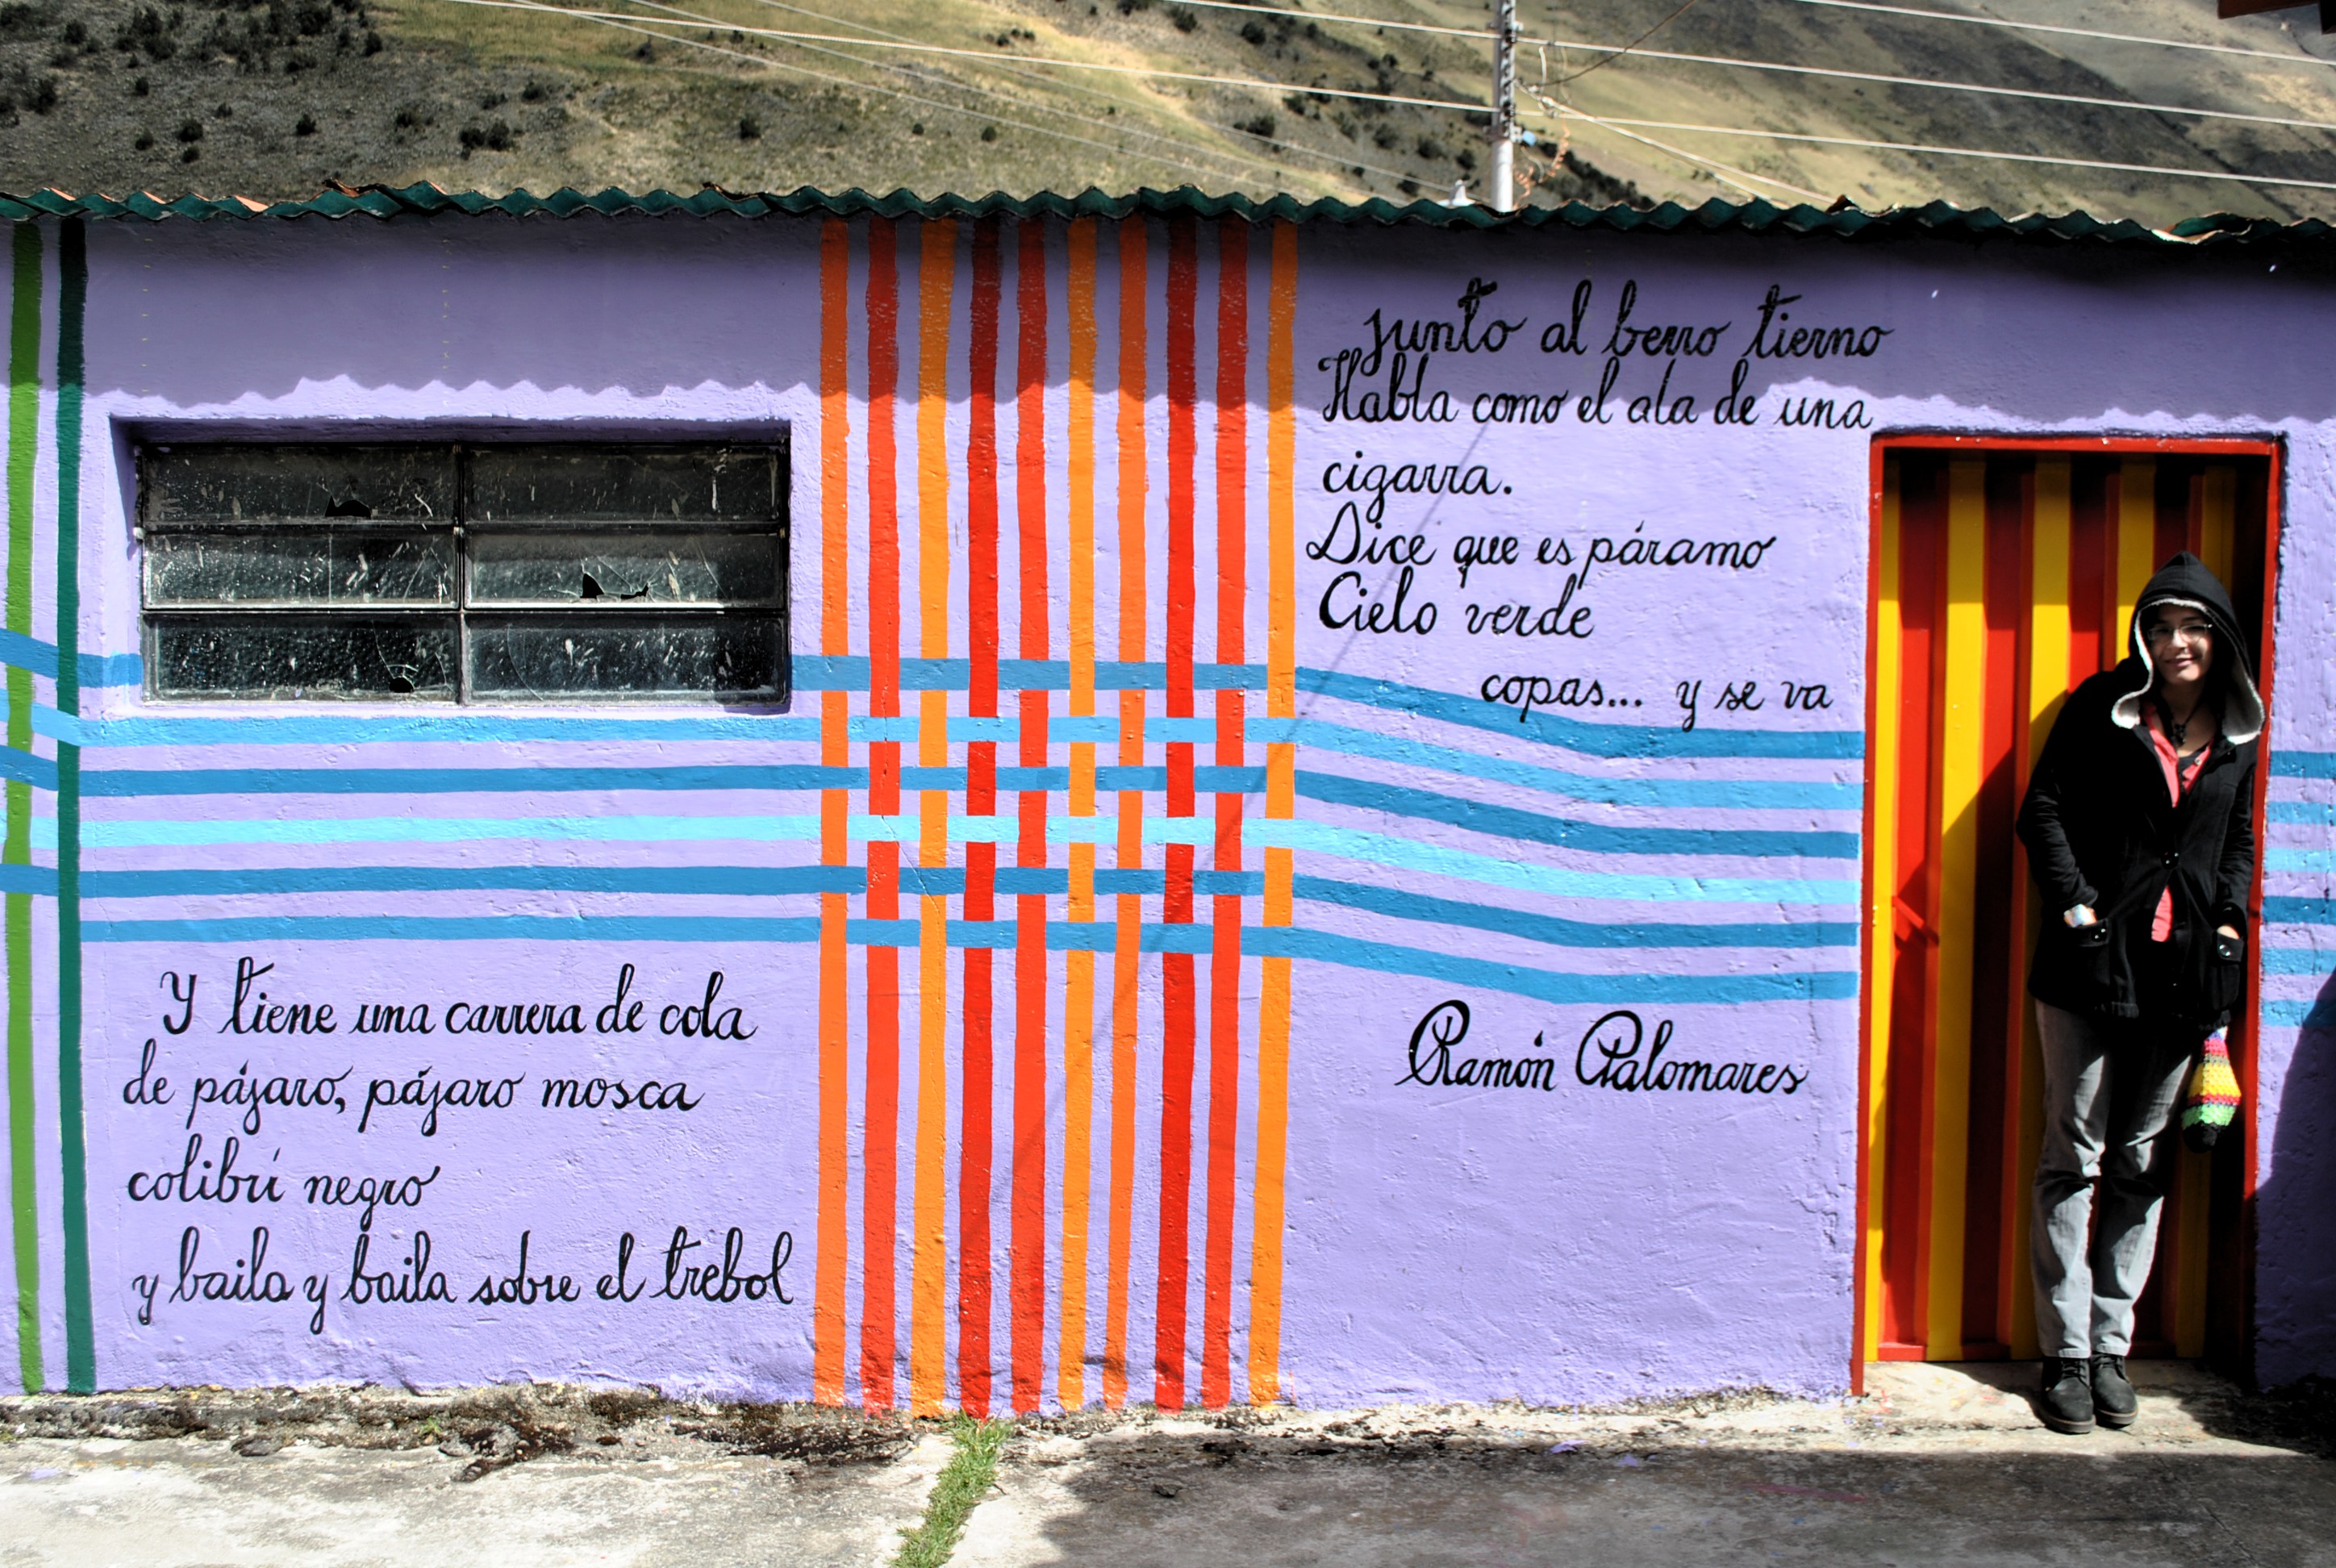 Y tiene una carrera de cola
de pájaro, pájaro mosca
colibrí negro
y baila y baila sobre el trebol
junto al berro tierno
Habla como el ala de una
cigarra.
Dice que es páramo
Cielo verde
copas... y se va
Ramón Palomares